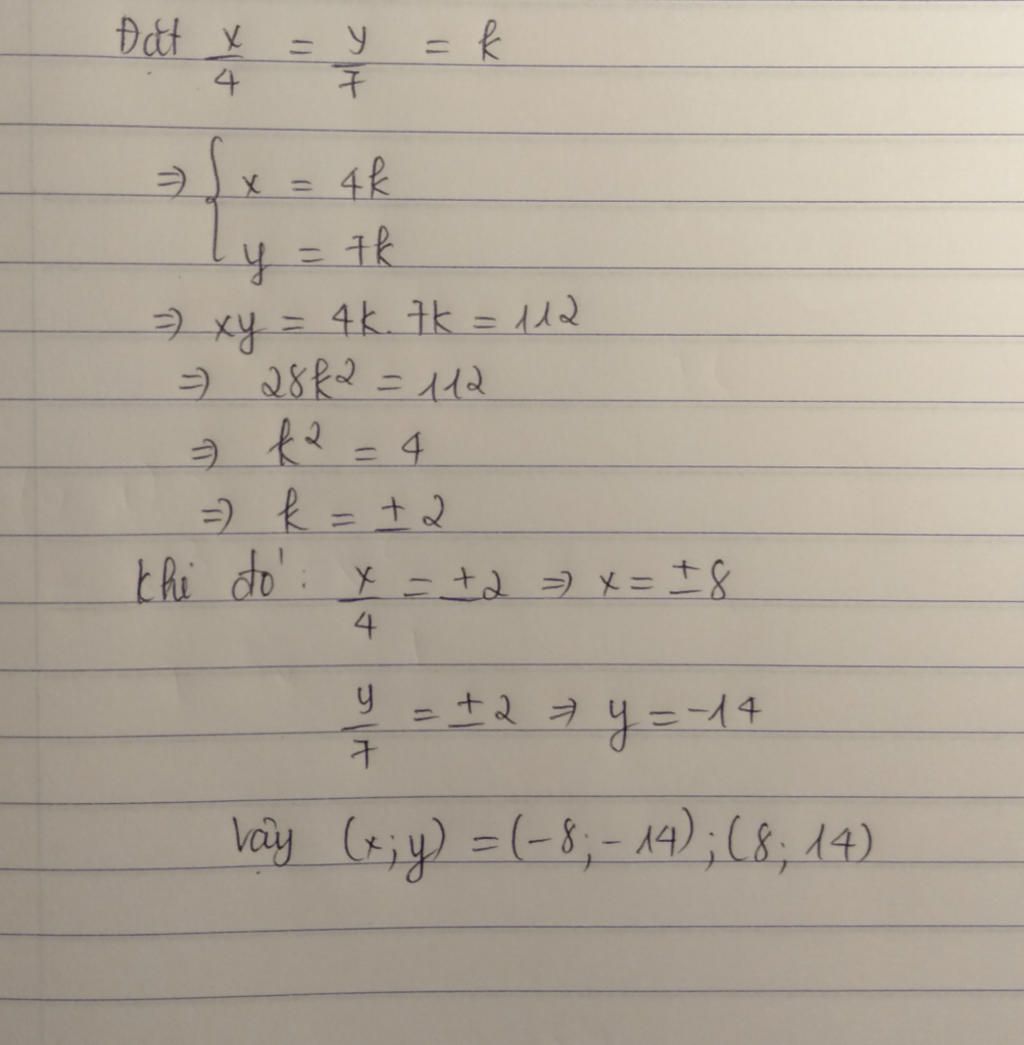 Đặt x/4 = y/7 = k
⇒ { x = 4k
y = 7k
⇒ xy = 4k. 7k = 112
⇒ 28k² = 112
⇒ k² = 4
⇒ k = ± 2
Khi đó: x/4 = ±2 ⇒ x = ±8
y/7 = ±2 ⇒ y = -14
Vậy (x;y) = (-8;-14);(8;14)